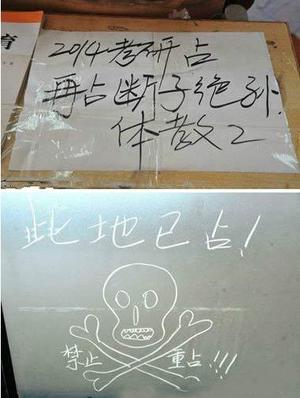 育
2014考研占
再占断子绝孙!
体教2
此地已占!
禁止 重占!!!